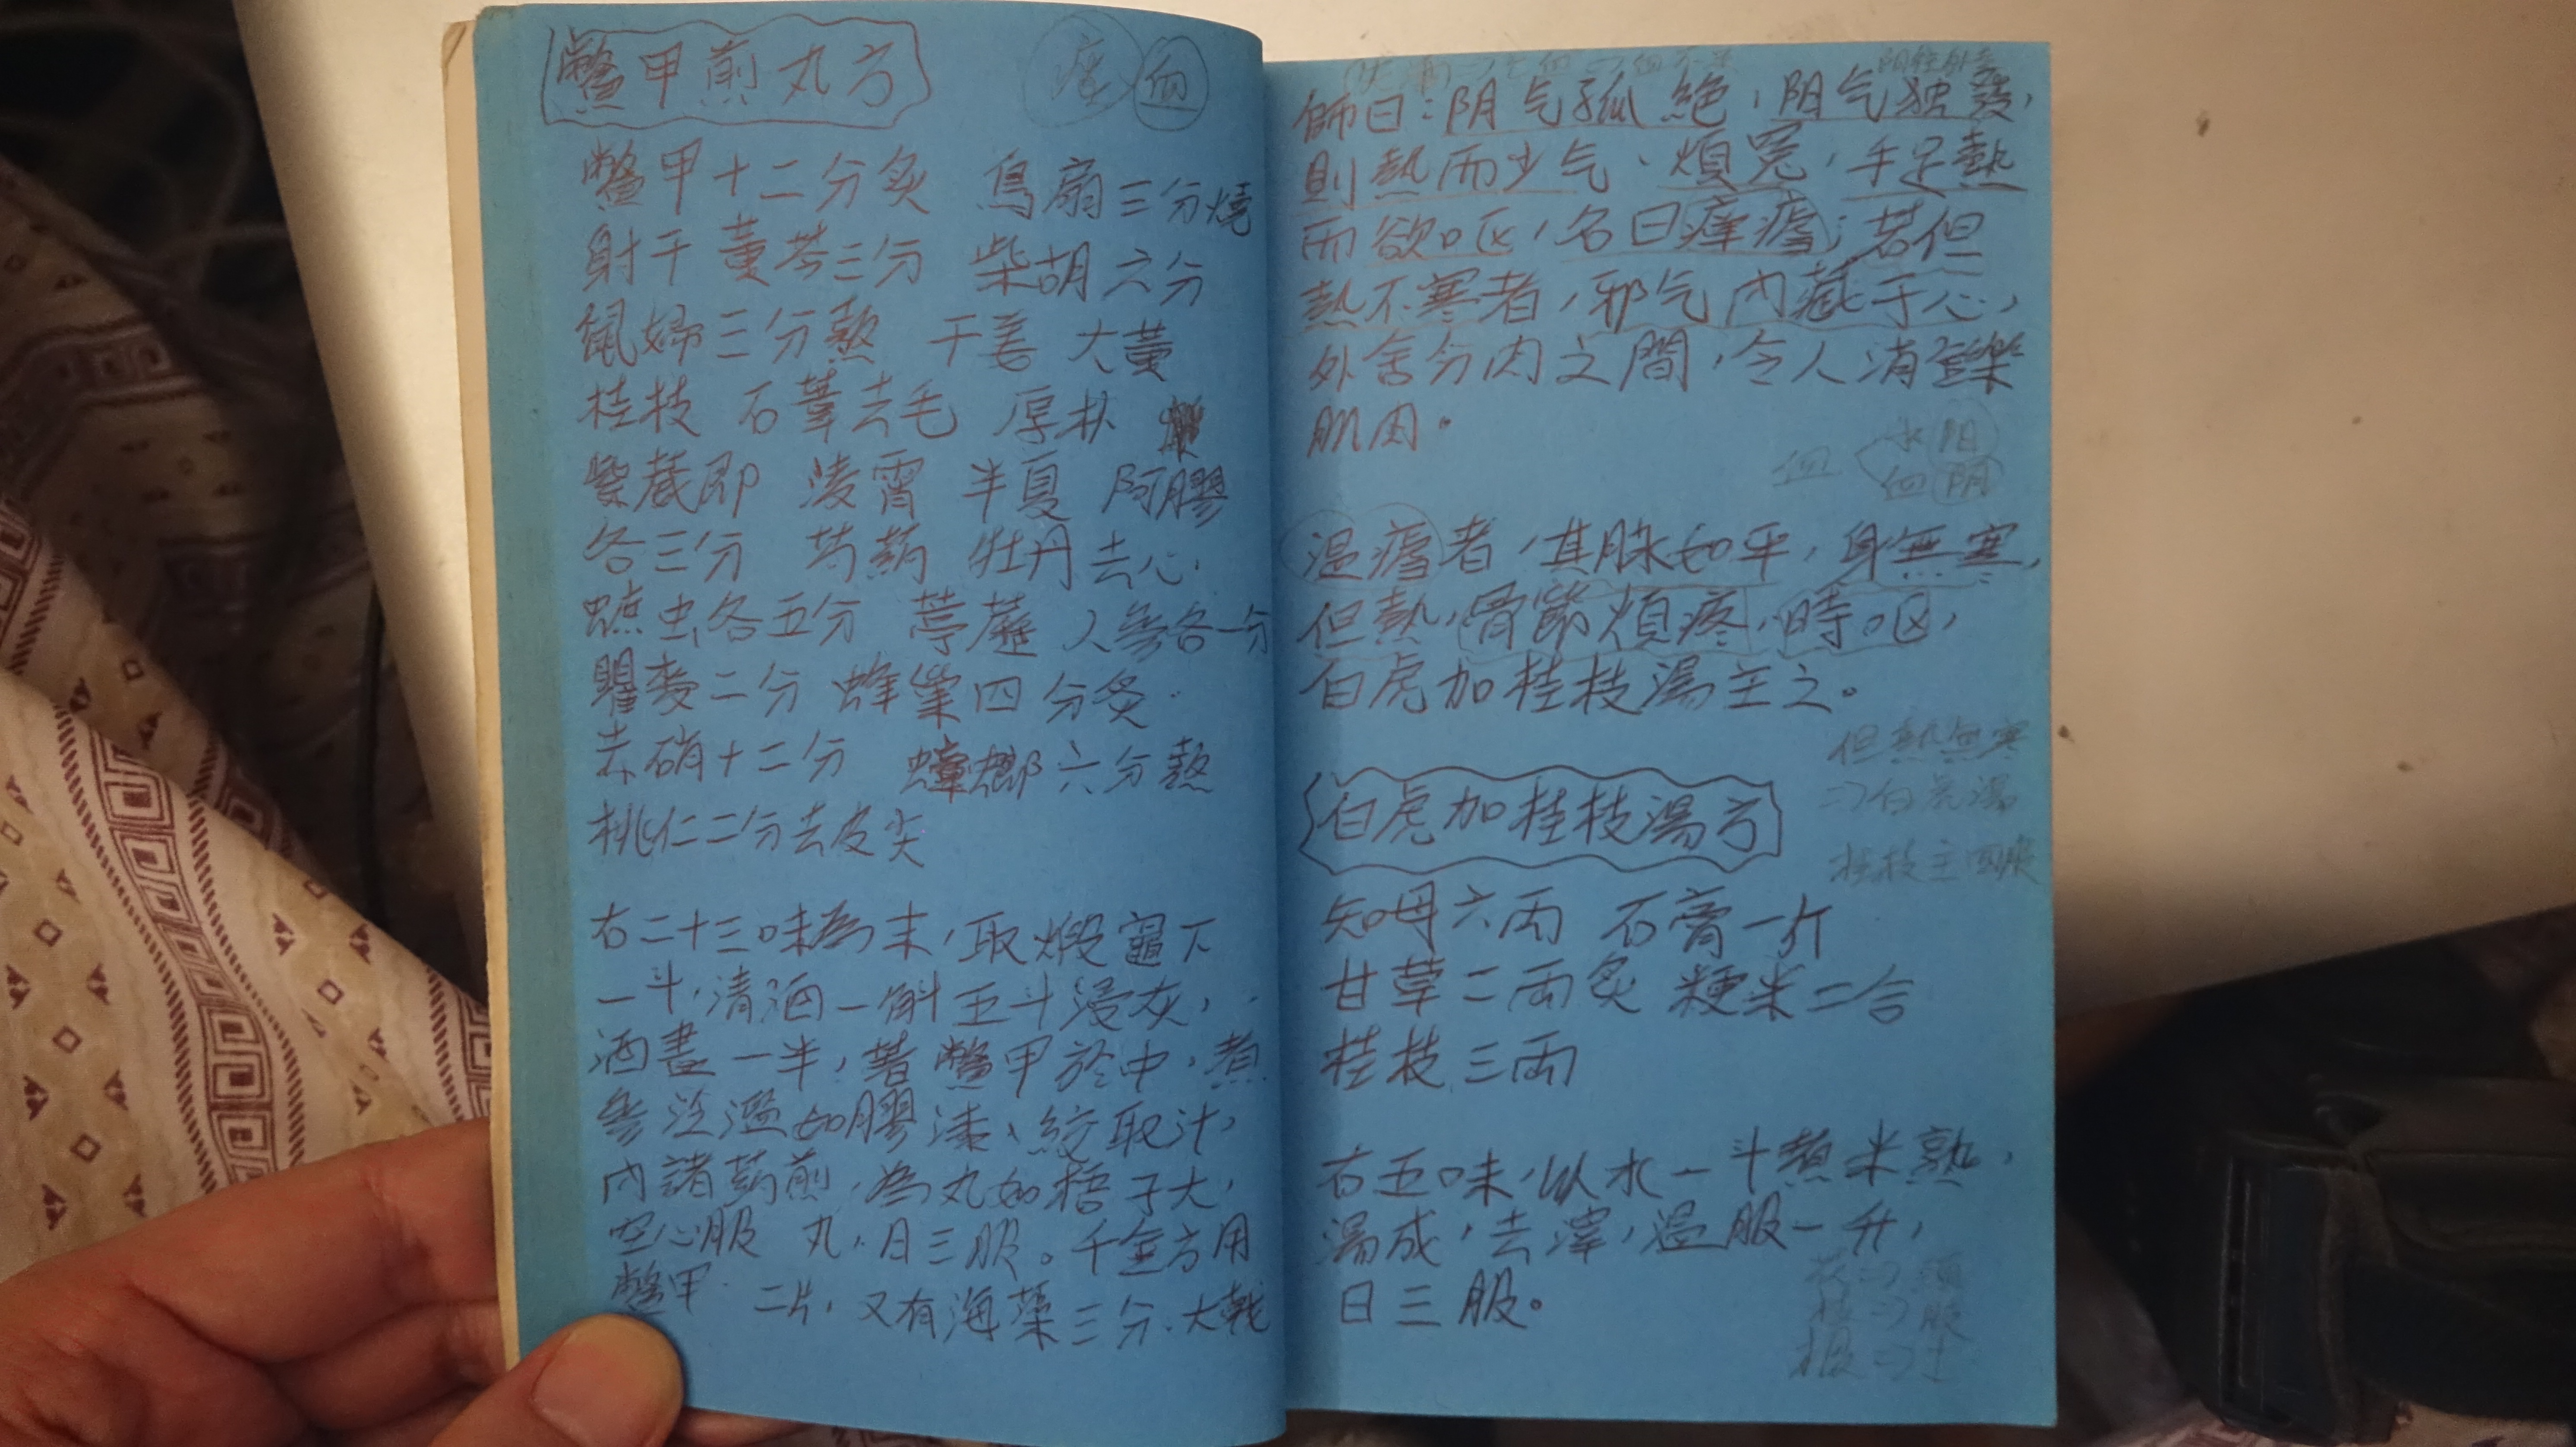 鱉甲煎丸方
瘧 血
鱉甲十二分炙 烏扇三分燒
射干 黃芩三分 柴胡六分
鼠婦三分熬 干姜 大黃
桂枝 石葦去毛 厚朴
紫葳即 淩霄 半夏 阿膠
各三分 芍葯 牡丹去心
蟅虫各五分 葶藶 人參各一分
瞿麥二分 蜂窠四分炙
赤硝十二分 蜣螂六分熬
桃仁二分去皮尖
右二十三味為末,取煅竈下
一斗,清酒一斛五斗浸灰,
酒盡一半,著鱉甲於中,煮
令泛濫如膠漆、絞取汁,
內諸葯煎,為丸如梧子大,
空心服 丸,日三服。千金方用
鱉甲 二片,又有海藻三分、大戟
師曰:阴气孤絕,阳气独發,
則熱而少气、煩冤,手足熱
而欲呕,名曰癉瘧;若但
熱不寒者,邪气內藏于心,
外舍分肉之間,令人消鑠
肌肉。
水 阳
血
血 阴
温瘧者,其脉如平,身無寒,
但熱,骨節煩疼,時呕,
白虎加桂枝湯主之。
但熱無寒
=>白虎湯
桂枝主四肢
白虎加桂枝湯方
知母六兩 石膏一斤
甘草二兩炙 粳米二合
桂枝三兩
右五味,以水一斗煮米熟,
湯成,去滓,温服一升,
日三服。